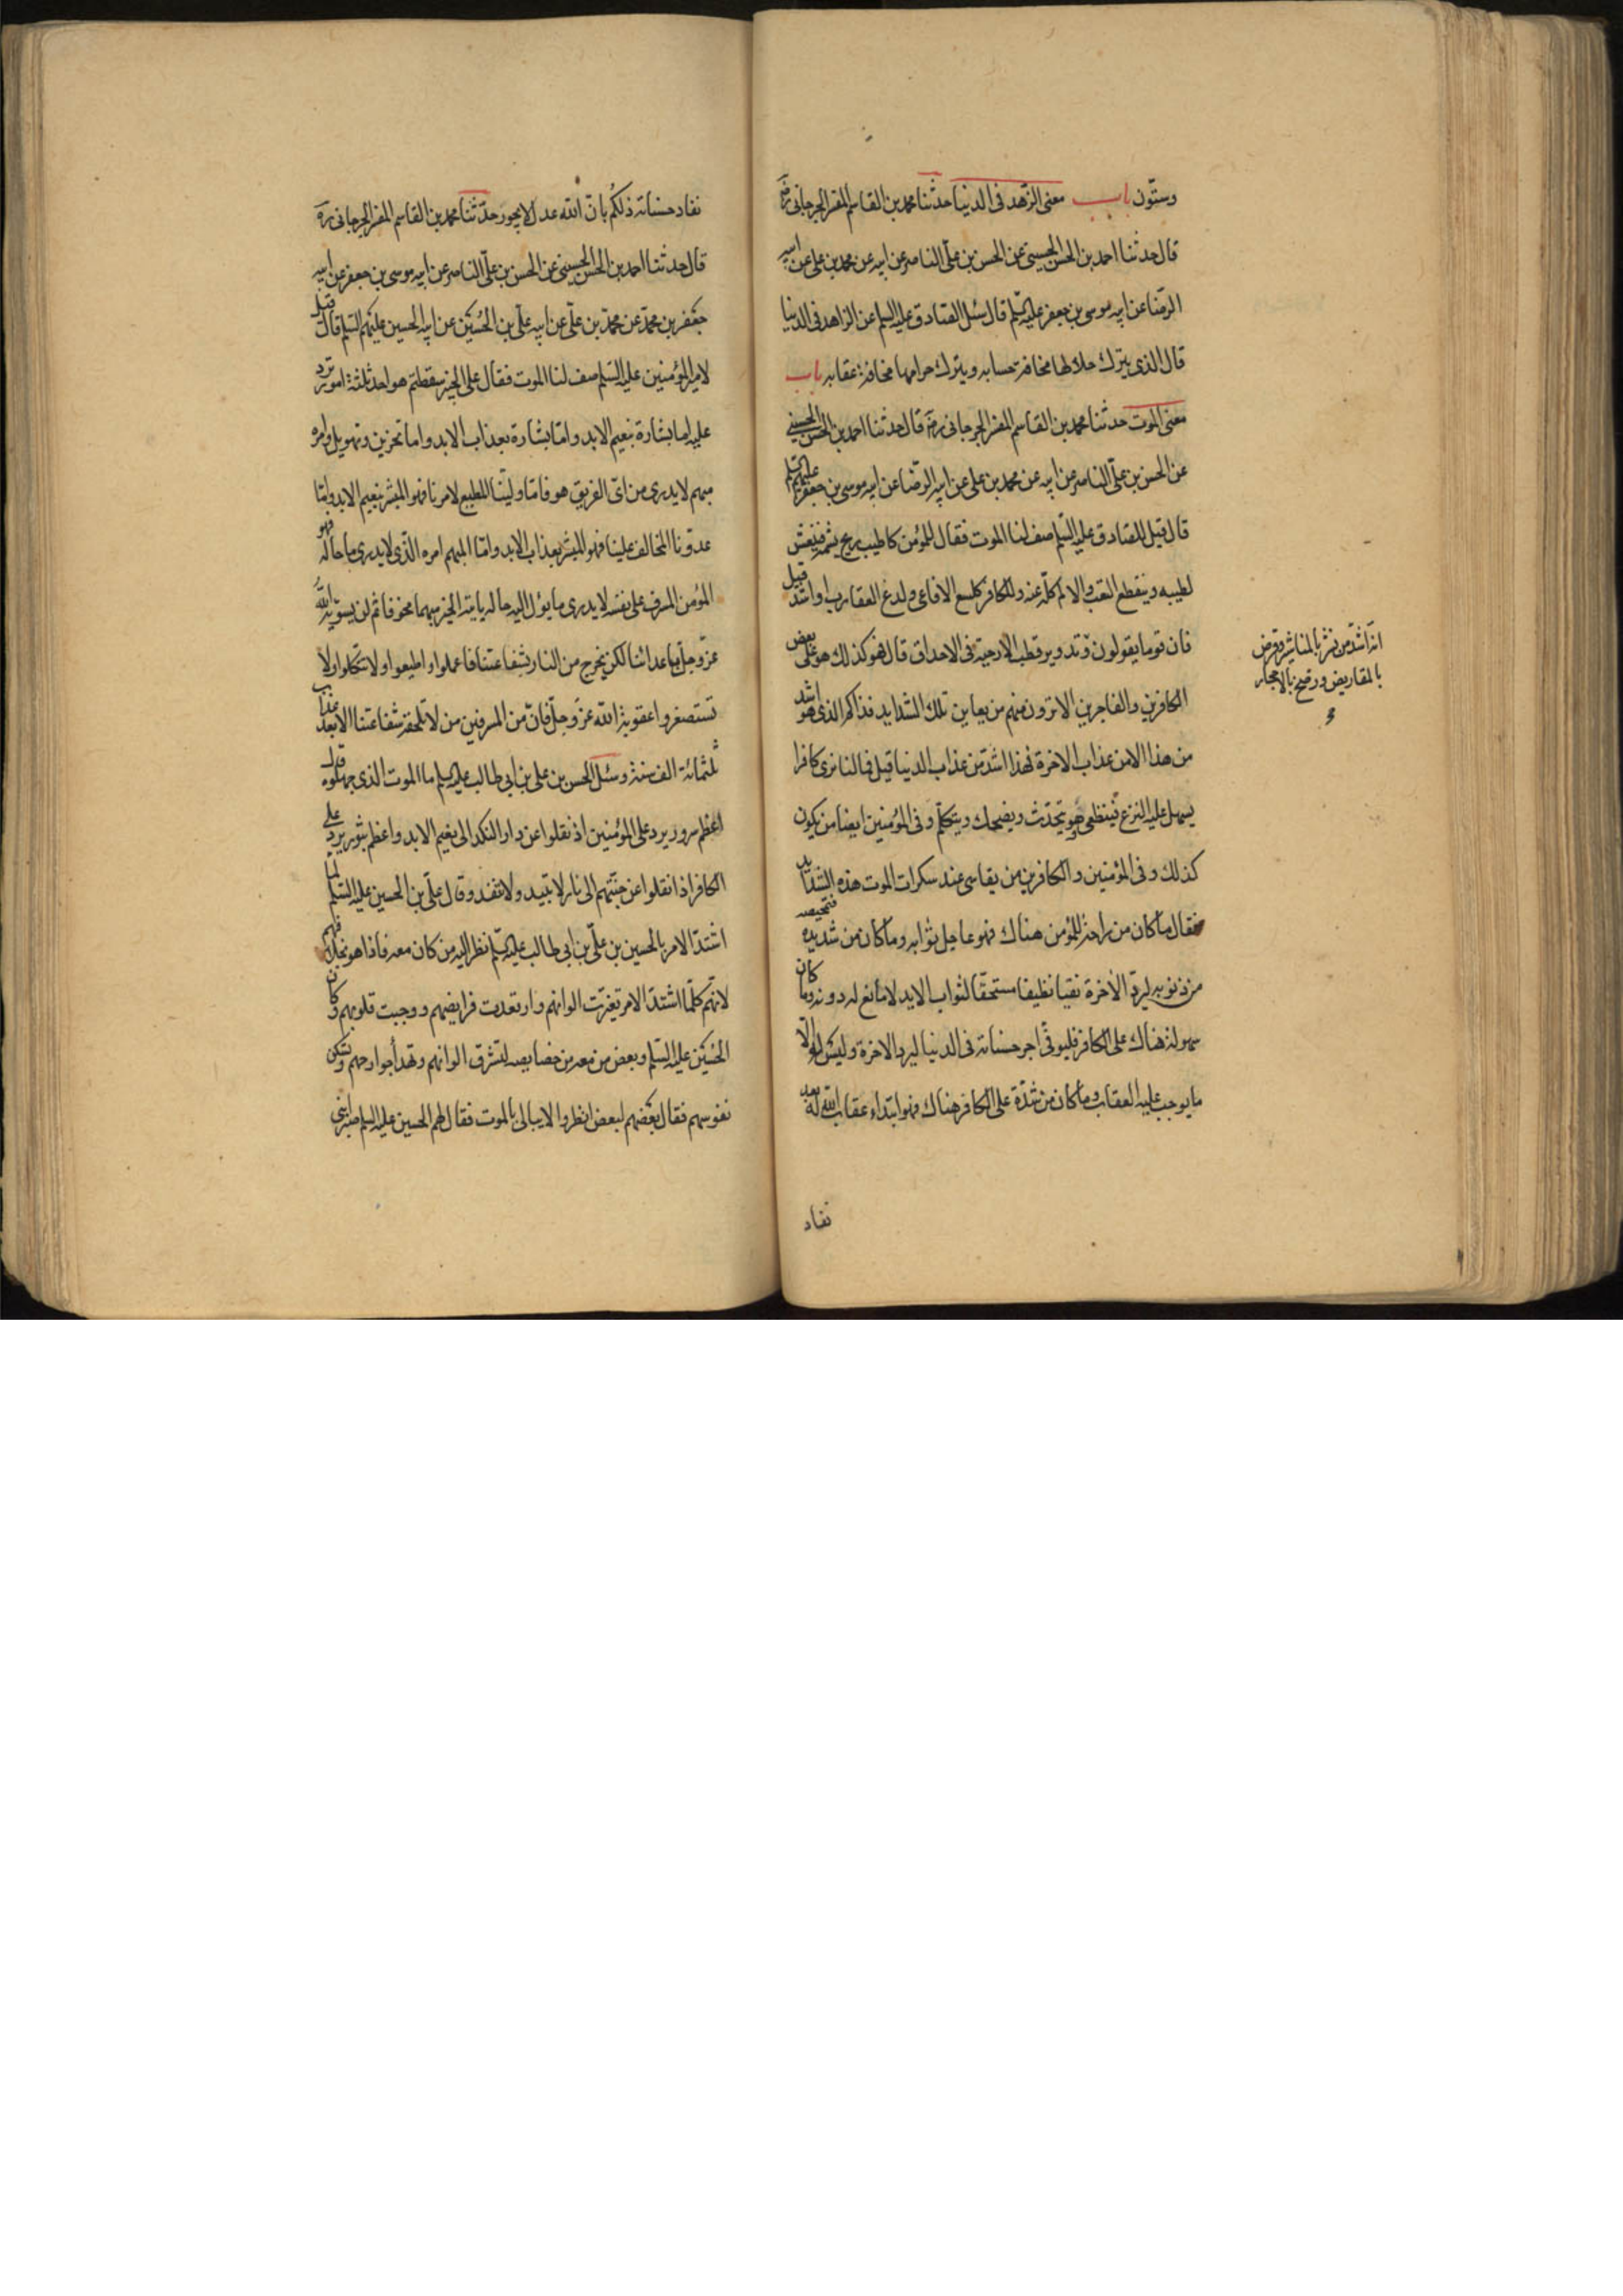 وستّون باب معنى الزّهد فى الدنيا حدثنا محمد بن القاسم المفسر الجرجانى ره
قال حدثنا احمد بن الحسن الحسينى عن الحسن بن علىّ الناصر عن ابيه عن محمد بن على عن ابيه
الرّضا عن ابيه موسى بن جعفر عليهم السّلم قال سئل الصّادق عليه السلم عن الزاهد فى الدنيا
قال الذى يترك حلالها مخافة حسابه ويترك حرامها مخافة عقابه باب
معنى الموت حدثنا محمد بن القاسم المفسر الجرجانى ره قال حدثنا احمد بن الحسن الحسينى
عن الحسن بن علىّ الناصر عن ابيه عن محمد بن على عن ابيه الرّضا عن ابيه موسى بن جعفر عليهم السّلم
قال قيل للصّادق عليه السّلم صف لنا الموت فقال للمؤمن كاطيب ريح يشمه فينعس
لطيبه وينقطع التعب والالم كلّه عنه وللكافر كلسع الافاعى ولدغ العقارب او اشدّ قيل
فان قوما يقولون وتدوير قطب الارحية فى الاحداق قال فهو كذلك هو على بعض
انّه اشدّ من نشر بالمناشير وقرض
بالمقاريض ورضخ بالاحجار
الكافرين والفاجرين الا ترون منهم من يعاين تلك الشدايد فذاكم الذى هو اشد
من هذا الا من عذاب الاخرة فهذا اشدّ من عذاب الدنيا قيل فما لنا نرى كافرا
يسهل عليه النزع فينطفى وهو يتحدّث ويضحك ويتكلّم وفى المؤمنين ايضا من يكون
كذلك وفى المؤمنين والكافرين من يقاسى عند سكرات الموت هذه الشدايد
فقال ما كان من راحة للمؤمن هناك فهو عاجل ثوابه وما كان من شديده فتمحيصه
من ذنوبه ليرد الاخرة نقيا نظيفا مستحقّا لثواب الابد لا مانع له دونه وما كان
سهولة هناك على الكافر فليوفّى اجر حسناته فى الدنيا ليرد الاخرة وليس له الّا
ما يوجب عليه العقاب وما كان من شدّة على الكافر هناك فهو ابتداء عقاب الله له بعد
نفاد
نفاد حسناته ذلكم بانّ الله عدل لا يجور حدّثنا محمد بن القاسم المفسر الجرجانى ره
قال حدثنا احمد بن الحسن الحسينى عن الحسن بن علىّ الناصر عن ابيه موسى بن جعفر عن ابيه
جعفر بن محمّد عن محمّد بن علّى عن ابيه علّى بن الحسين عن ابيه الحسين عليهم السّلم قال قيل
لامير المؤمنين عليه السّلم صف لنا الموت فقال على الخبير سقطتم هو احد ثلثة امور ترد
عليه اما بشارة بنعيم الابد وامّا بشارة بعذاب الابد واما تحزين وتهويل وامره
مبهم لا يدرى من اىّ الفريق هو فامّا وليّنا المطيع لامرنا فهو المبشر بنعيم الابد وامّا
عدوّنا المخالف علينا فهو المبشر بعذاب الابد وامّا المبهم امره الذّى لا يدرى ما حاله فهو
المؤمن المسرف على نفسه لا يدرى ما يؤل اليه حاله ياتيه الخبر مبهما مخوفا ثم لن يسوّيه الله
عزّ وجلّ باعدائنا لكن يخرج من النار بشفاعتنا فاعملوا واطيعوا ولا تتكلوا ولا
تستصغروا عقوبة الله عزّ وجلّ فانّ من المسرفين من لا تلحقه شفاعتنا الا بعد عذاب
ثلثمائة الف سنة وسئل الحسن بن على بن ابى طالب عليه السلم ما الموت الذى جهلوه قال
اعظم سرور يرد على المؤمنين اذ نقلوا عن دار النكد الى نعيم الابد واعظم ثبور يرد على
الكافر اذا نقلوا عن جنّتهم الى نار لا تبيد ولا تنفد وقال علّى بن الحسين عليه السّلم لمّا
اشتدّ الامر بالحسين بن علىّ بن ابى طالب عليه السّلم نظر اليه من كان معه فاذا هو بخلافهم
لانّهم كلّما اشتدّ الامر تغيّرت الوانهم وارتعدت فرايصهم ووجبت قلوبهم وكان
الحسين عليه السّلم وبعض من معه من خصايصه تشرق الوانهم وتهدأ جوارحهم وتسكن
نفوسهم فقال بعضهم لبعض انظروا لا يبالى بالموت فقال لهم الحسين عليه السلم صبرا بنى